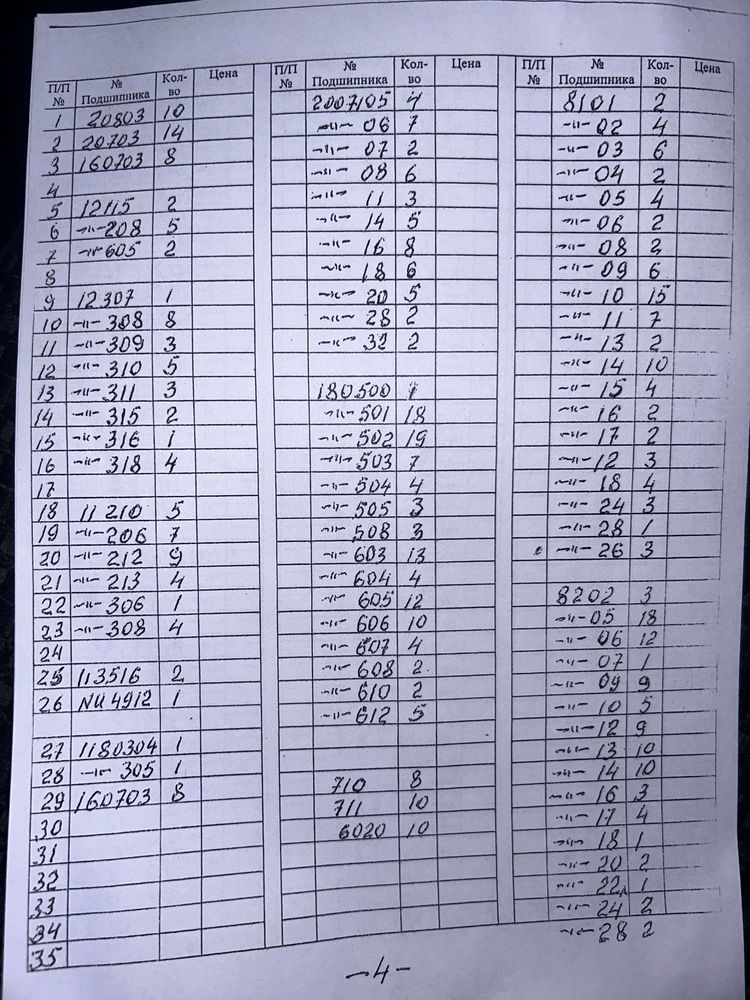 П/П № № Подшипника Кол-во Цена
1 20803 10
2 20703 14
3 160703 8
4
5 12115 2
6 -"- 208 5
7 -"- 605 2
8
9 12307 1
10 -"- 308 8
11 -"- 309 3
12 -"- 310 5
13 -"- 311 3
14 -"- 315 2
15 -"- 316 1
16 -"- 318 4
17
18 11210 5
19 -"- 206 7
20 -"- 212 9
21 -"- 213 4
22 -"- 306 1
23 -"- 308 4
24
25 113516 2
26 NU 4912 1
27 1180304 1
28 -"- 305 1
29 160703 8
30
31
32
33
34
35
П/П № № Подшипника Кол-во Цена
2007105 4
-"- 06 7
-"- 07 2
-"- 08 6
-"- 11 3
-"- 14 5
-"- 16 8
-"- 18 6
-"- 20 5
-"- 28 2
-"- 32 2
180500
-"- 501 18
-"- 502 19
-"- 503 7
-"- 504 4
-"- 505 3
-"- 508 3
-"- 603 13
-"- 604 4
-"- 605 12
-"- 606 10
-"- 607 4
-"- 608 2
-"- 610 2
-"- 612 5
710 8
711 10
6020 10
П/П № № Подшипника Кол-во Цена
8101 2
-"- 02 4
-"- 03 6
-"- 04 2
-"- 05 4
-"- 06 2
-"- 08 2
-"- 09 6
-"- 10 15
-"- 11 7
-"- 13 2
-"- 14 10
-"- 15 4
-"- 16 2
-"- 17 2
-"- 12 3
-"- 18 4
-"- 24 3
-"- 28 1
-"- 26 3
8202 3
-"- 05 18
-"- 06 12
-"- 07 1
-"- 09 9
-"- 10 5
-"- 12 9
-"- 13 10
-"- 14 10
-"- 16 3
-"- 17 4
-"- 18 1
-"- 20 2
-"- 22 1
-"- 24 2
-"- 28 2
-4-